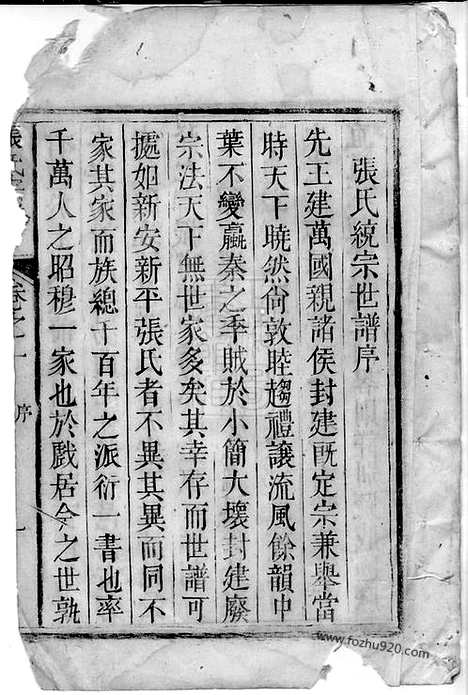 張氏統宗世譜序
先王建萬國親諸侯封建既定宗兼舉當
時天下曉然尚敦睦趨禮讓流風餘韻中
葉不變嬴秦之季賊於小簡大壞封建廢
宗法天下無世家多矣其幸存而世譜可
據如新安新平張氏者不異其異而同不
家其家而族總千百年之派衍一書也率
千萬人之昭穆一家也於戲居今之世孰
張氏
卷之一
序
一
www.fozhu920.com